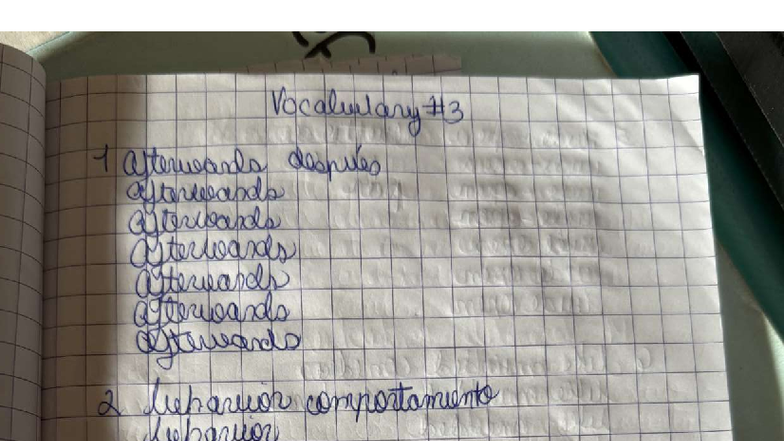 Vocabulary #3
1 afterwards después
afterwards
afterwards
afterwards
afterwards
afterwards
afterwards
2 behavior comportamiento
behavior